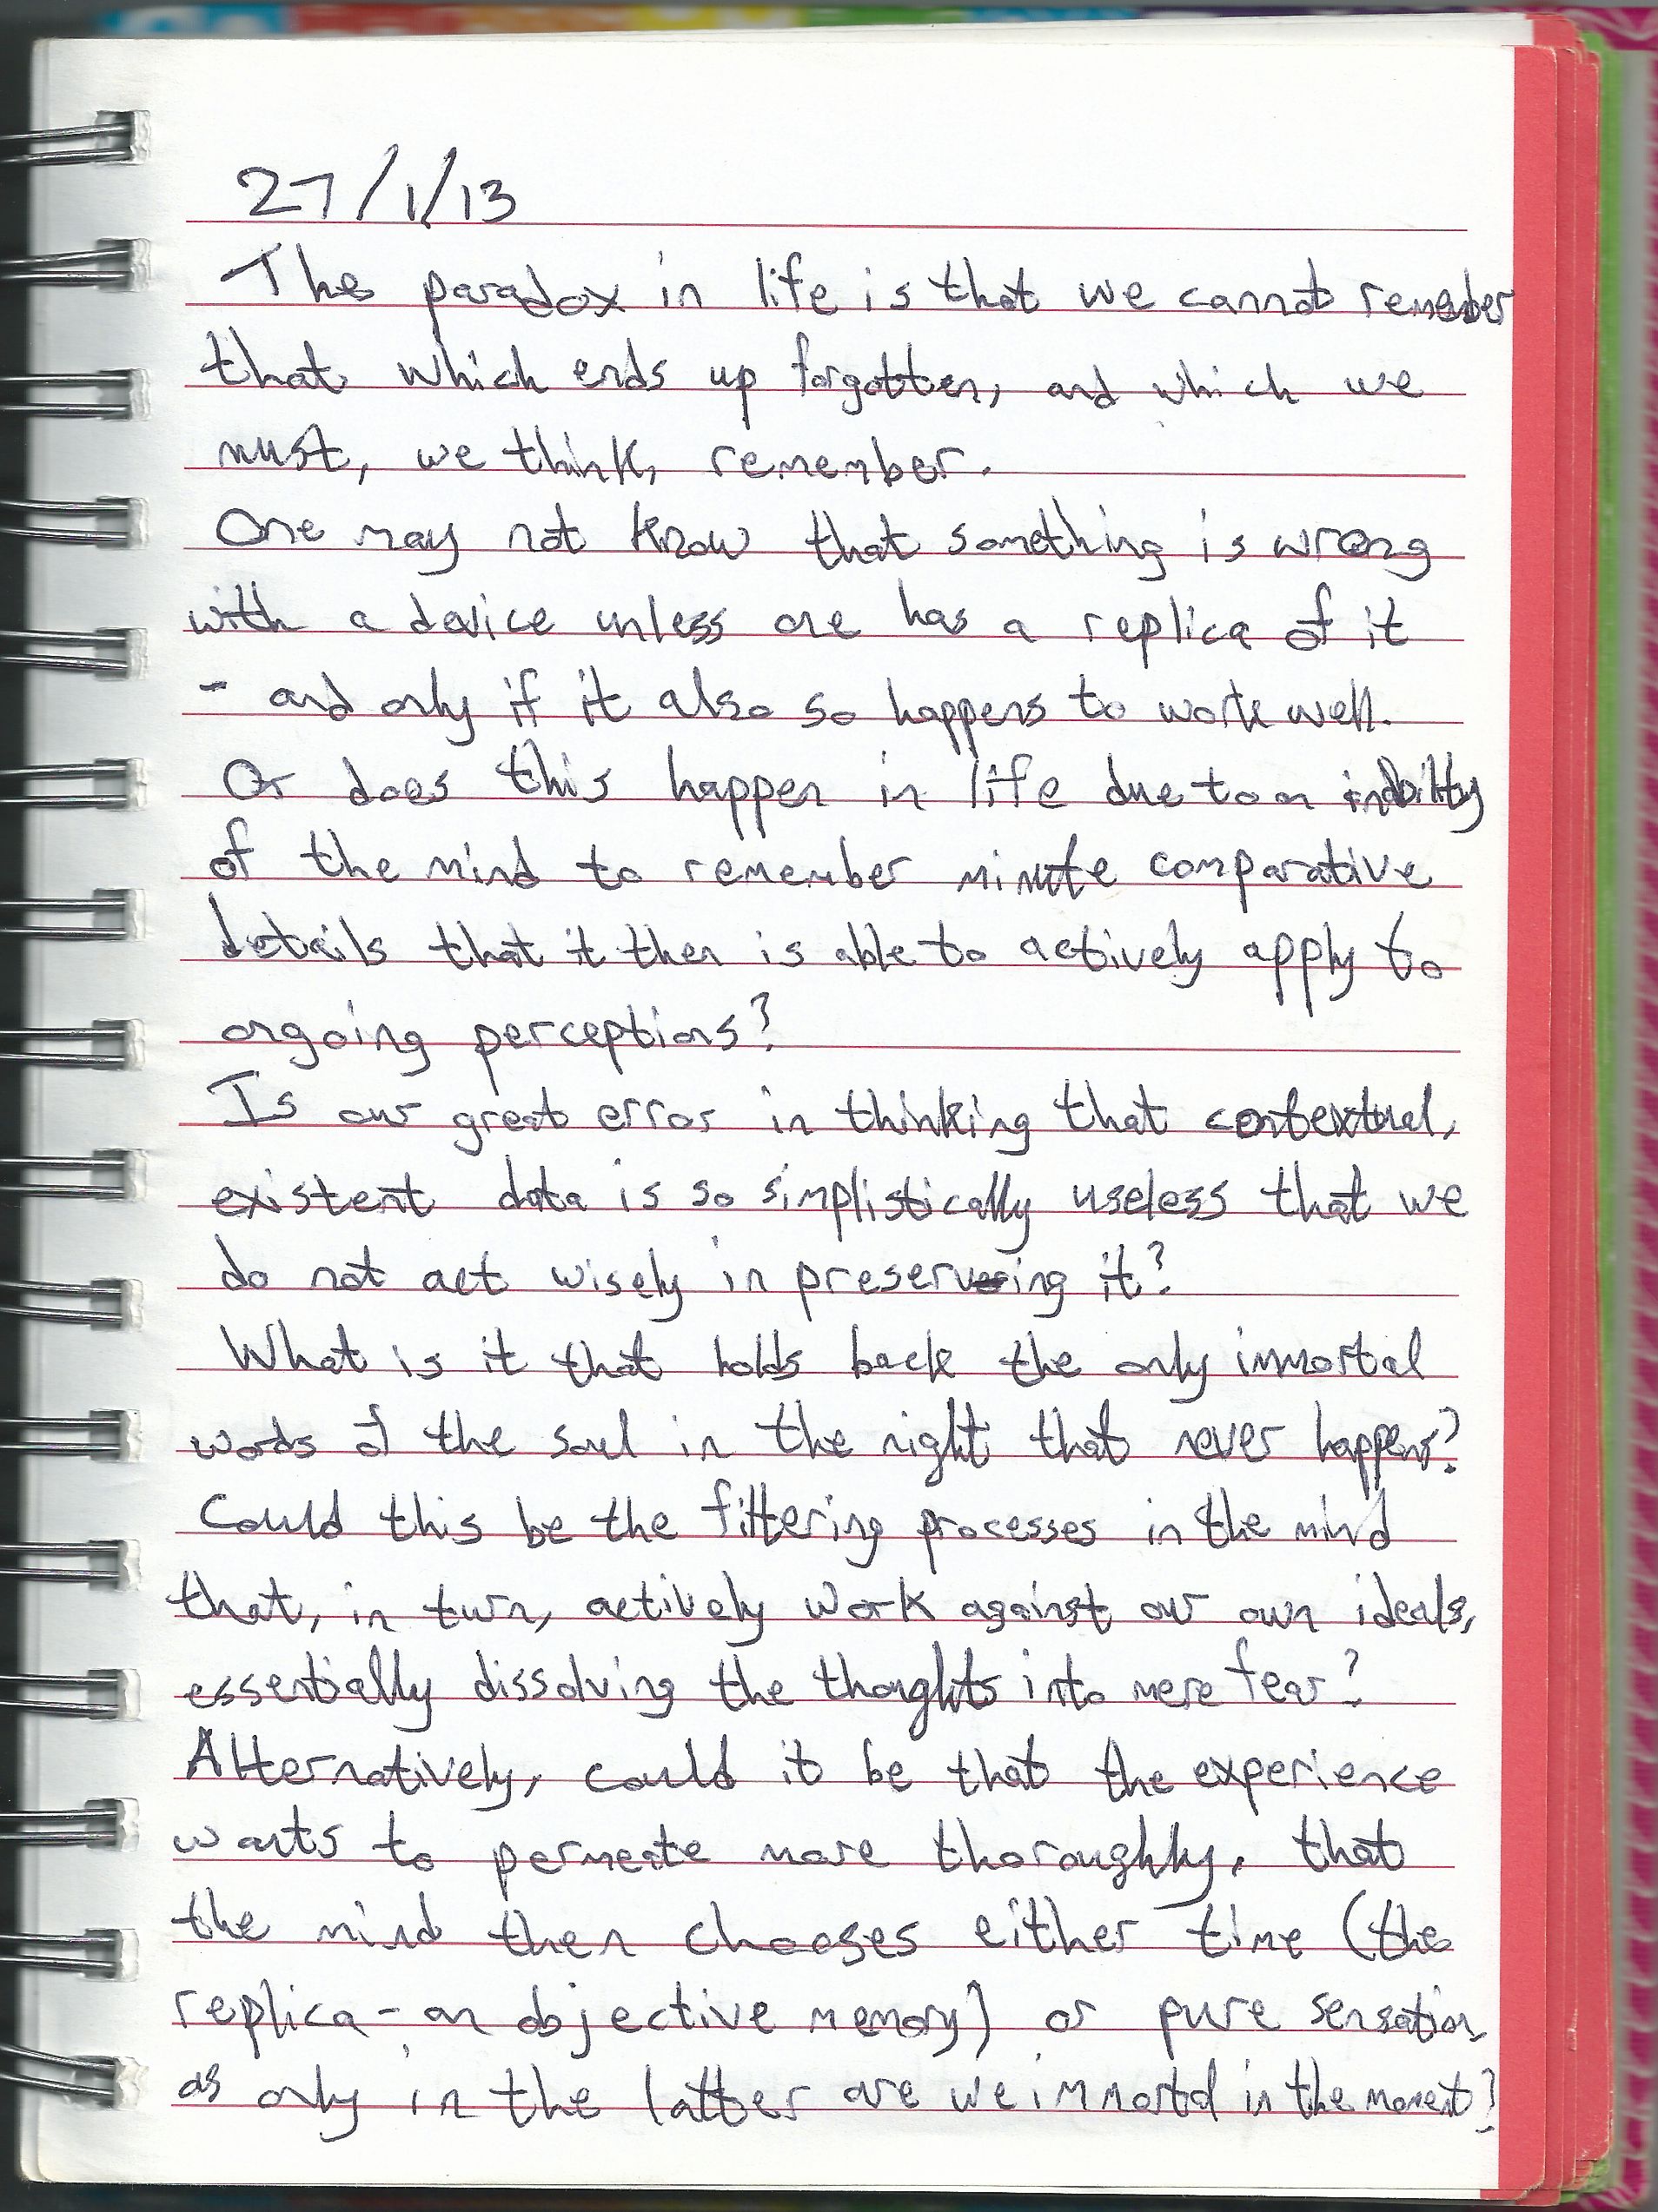 27/1/13
The paradox in life is that we cannot remember
that which ends up forgotten, and which we
must, we think, remember.
One may not know that something is wrong
with a device unless one has a replica of it
- and only if it also so happens to work well.
Or does this happen in life due to an inability
of the mind to remember minute comparative
details that it then is able to actively apply to
ongoing perceptions?
Is our great error in thinking that contextual,
existent data is so simplistically useless that we
do not act wisely in preserving it?
What is it that holds back the only immortal
words of the soul in the night that never happens?
Could this be the filtering processes in the mind
that, in turn, actively work against our own ideals,
essentially dissolving the thoughts into mere fear?
Alternatively, could it be that the experience
wants to permeate more thoroughly, that
the mind then chooses either time (the
replica - an objective memory) or pure sensation,
as only in the latter are we immortal in the moment?